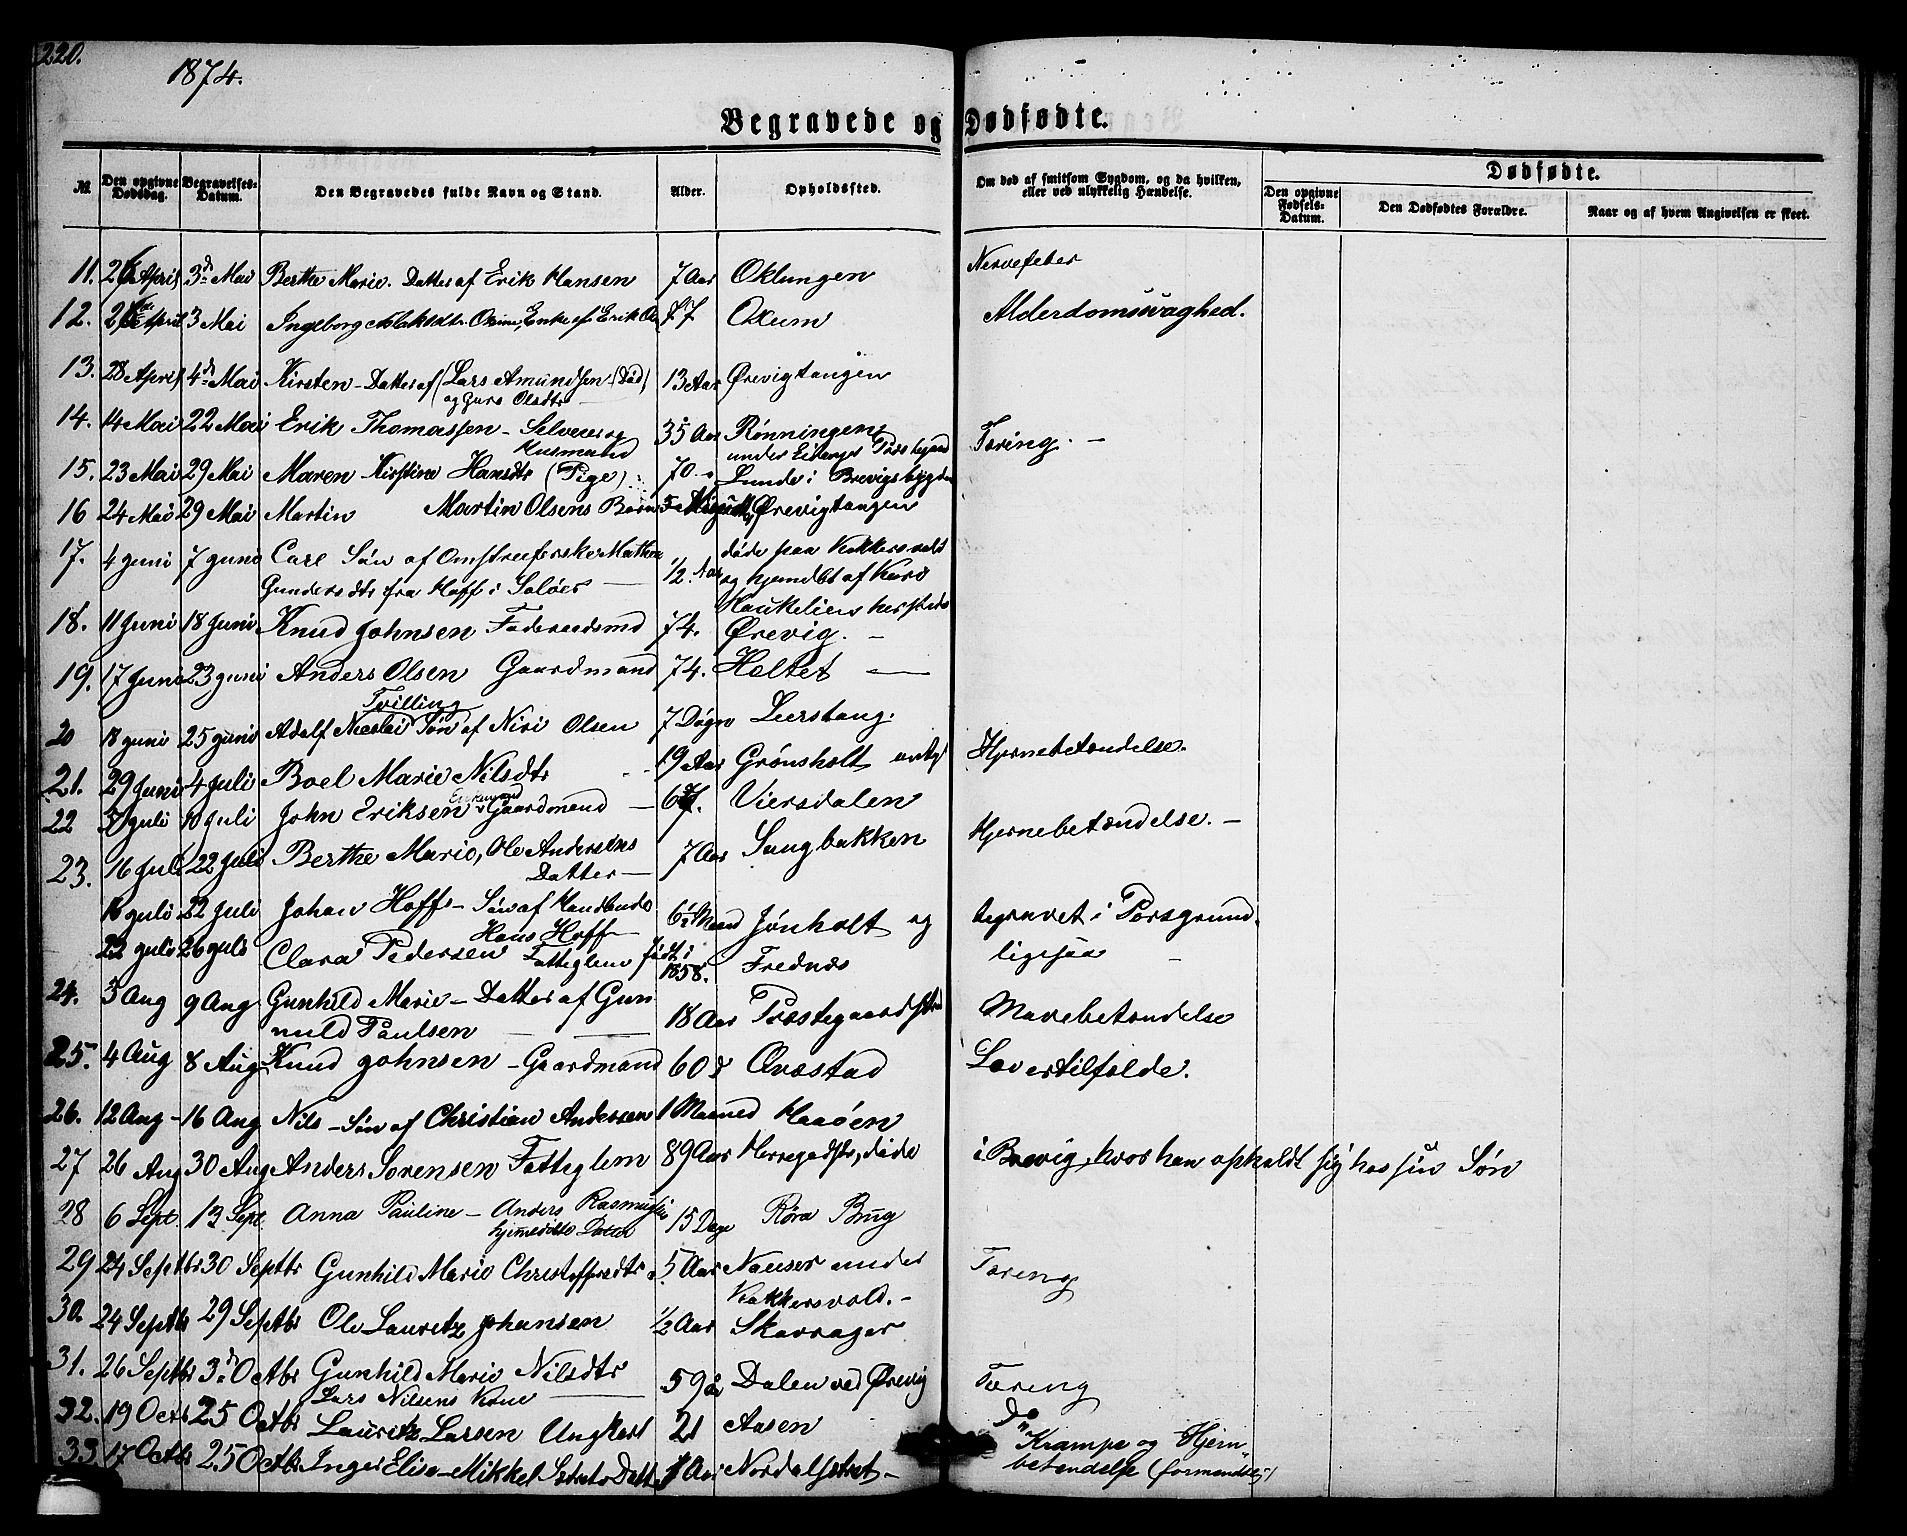 220.
1874.
Begravede og Dødfødte.
№
Den opgivne Dødsdag.
Begravelses-Datum.
Den Begravedes fulde Navn og Stand.
Alder.
Opholdssted.
Om død af smitsom Sygdom, og da hvilken, eller ved ulykkelig Hændelse.
Dødfødte.
Den opgivne Fødsels-Datum.
Den Dødfødtes Forældre.
Naar og af hvem Angivelsen er skeet.
11. April 3d Mai Berthe Marie. Datter af Erik Hansen 7 Aar Oklungen Nervefeber
12. April 3 Mai Ingeborg Enke af Erik 77 Oxum Alderdomssvaghed.
13. 28 April 4d Mai Kirsten - Datter af (Lars Amundsen (Død) 13 Aar Ørevigtangen
og Olsdtr
14. 14 Mai 22 Mai Erik Thomassen - Selveier og 35 Aar Rønningen Tæring. -
Husmand under
15. 23 Mai 29 Mai Maren Kirstine Hansdtr (Pige) 70 Lunde i Brevigsbygden
16 24 Mai 29 Mai Martin Martin Olsens Barn Ørevigtangen
17. 4 Juni 7 Juni Carl Søn af Omstreiferske Mathea 1/2 Aar døde paa Kokkersvold
Gundersdtr fra Hoff i Soløer og hjemdøbt af Karo
Haukeliens hersteds
18. 11 Juni 18 Juni Knud Johnsen Føderaadsmd 74. Ørevig. -
19. 17 Juni 23 Juni Anders Olsen Gaardmand 74. Holtet -
Tvilling
20 18 Juni 25 Juni Adolf Nicolai Søn af Niri Olsen 7 Døgn Leerstang.
21. 29 Juni 4 Juli Boel Marie Nilsdtr 19 Aar Grønsholt Hjernebetændelse.
Enkemand
22 Juli 10 Juli John Eriksen Gaardmand - Viersdalen
23. 16 Juli 22 Juli Berthe Marie, Ole Andersens 7 Aar Sangbakken Hjernebetændelse. -
Datter -
16 Juli 22 Juli Johan Hoff - Søn af 6 1/2 Maaned Jønholt og begravet i Porsgrund.
Hans Hoff
22 Juli 26 Juli Clara Pedersen Fatteglem født i 1858. Frednæs ligesaa -
24. 3 Aug 9 Aug Gunhild Marie - Datter af Gun 18 Aar Mavebetændelse
nuld Paulsen -
25. 4 Aug 8 Aug Knud Johnsen - Gaardmand 60 Ovrestad Levertilfælde.
26. 12 Aug - 16 Aug Nils - Søn af Christian Andersen 1 Maaned Haaøen
27 26 Aug 30 Aug Anders Sørensen Fatteglem 89 Aar Herregdstr, døde i Brevig, hvor han opholdt sig hos sin Søn
28 6 Sept. 13 Sept Anna Pauline - Anders Rasmussens 15 Dage Røra Brug
hjemedøbte Datter
29 24 Septbr 30 Septbr Gunhild Marie Christoffersdtr 5 Aar Nauser under Tæring
Kokkersvold. -
30. 24 Septbr 29 Septbr Ole Lauritz Johansen 1/2 Aar Skavrager
31. 26 Septbr 3d Octbr Gunhild Marie Nilsdtr 59 Dalen ved Ørevig Tæring
Lars Nilsens Kone
32. 19 Octbr 25 Octbr Lauritz Larsen Ungkarl 21 Aasen Do
33 17 Octbr 25 Octbr Inger Elise - Mikkel Datter Aar Nordal - Krampe og Hjerne
betændelse (formentlig)